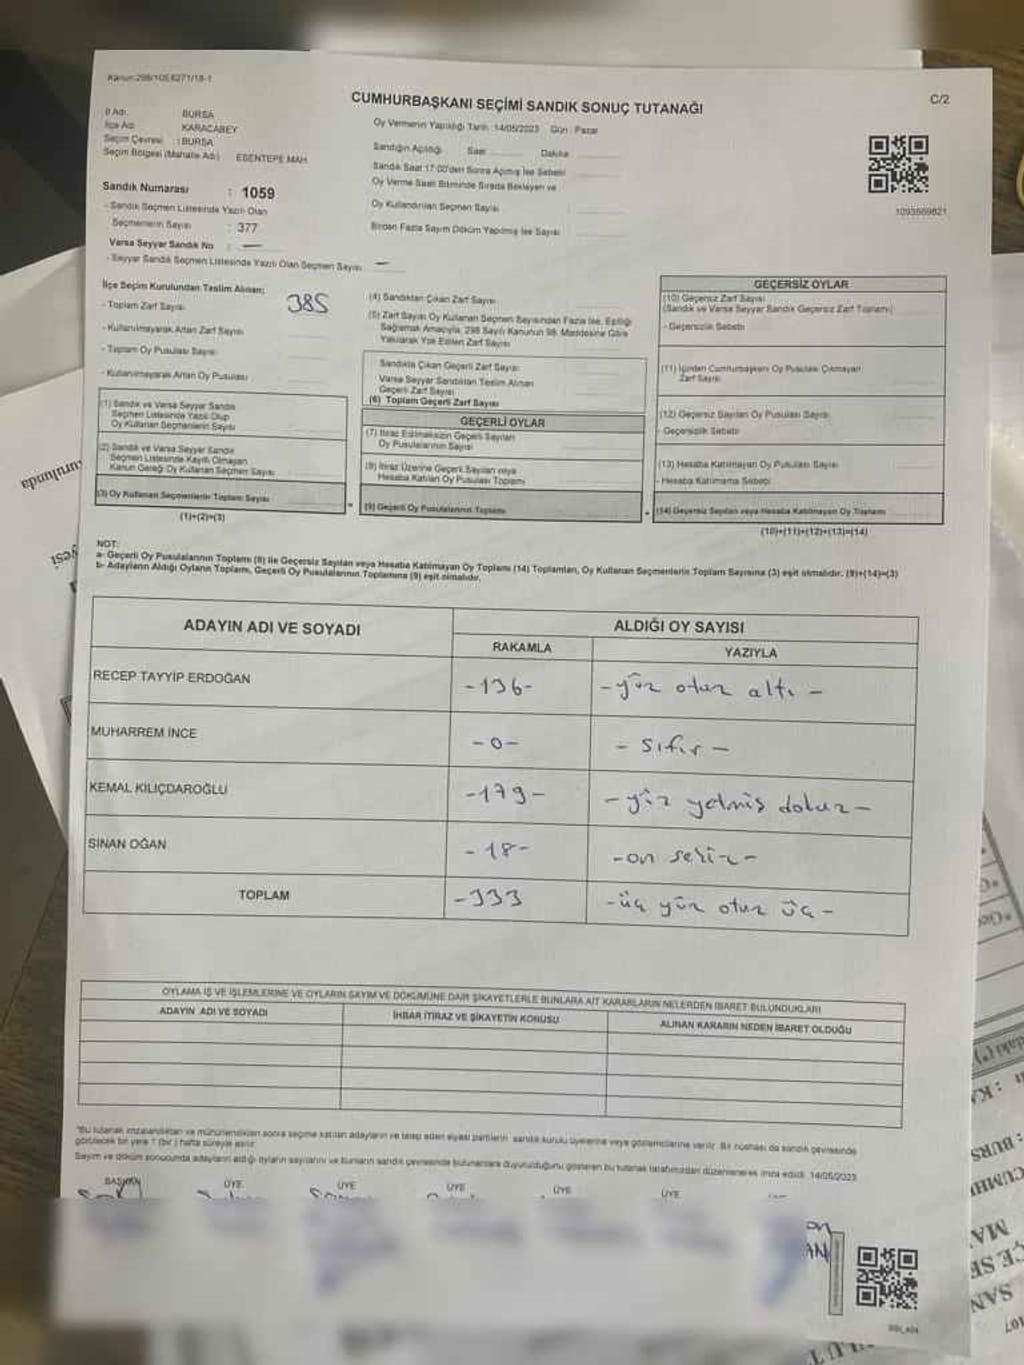 Kanun:298/105&6271/18-1
CUMHURBAŞKANI SEÇİMİ SANDIK SONUÇ TUTANAĞI
C/2
İl Adı : BURSA
İlçe Adı : KARACABEY
Seçim Çevresi : BURSA
Seçim Bölgesi (Mahalle Adı) ESENTEPE MAH
Sandık Numarası : 1059
- Sandık Seçmen Listesinde Yazılı Olan
Seçmenlerin Sayısı : 377
Varsa Seyyar Sandık No : —
- Seyyar Sandık Seçmen Listesinde Yazılı Olan Seçmen Sayısı —
Oy Vermenin Yapıldığı Tarih :14/05/2023 Gün : Pazar
Sandığın Açıldığı Saat ......... Dakika .........
Sandık Saat 17:00'den Sonra Açılmış İse Sebebi
Oy Verme Saati Bitiminde Sırada Bekleyen ve
Oy Kullandırılan Seçmen Sayısı
Birden Fazla Sayım Döküm Yapılmış İse Sayısı
1093569821
İlçe Seçim Kurulundan Teslim Alınan;
- Toplam Zarf Sayısı 385
- Kullanılmayarak Artan Zarf Sayısı
- Toplam Oy Pusulası Sayısı
- Kullanılmayarak Artan Oy Pusulası
(1) Sandık ve Varsa Seyyar Sandık
Seçmen Listesinde Yazılı Olup
Oy Kullanan Seçmenlerin Sayısı
(2) Sandık ve Varsa Seyyar Sandık
Seçmen Listesinde Kayıtlı Olmayan
Kanun Gereği Oy Kullanan Seçmen Sayısı
(3) Oy Kullanan Seçmenlerin Toplam Sayısı
(1)+(2)=(3)
(4) Sandıktan Çıkan Zarf Sayısı
(5) Zarf Sayısı Oy Kullanan Seçmen Sayısından Fazla İse, Eşitliği
Sağlamak Amacıyla, 298 Sayılı Kanunun 98. Maddesine Göre
Yakılarak Yok Edilen Zarf Sayısı
Sandıkta Çıkan Geçerli Zarf Sayısı
Varsa Seyyar Sandıktan Teslim Alınan
Geçerli Zarf Sayısı
(6) Toplam Geçerli Zarf Sayısı
GEÇERLİ OYLAR
(7) İtiraz Edilmeksizin Geçerli Sayılan
Oy Pusulalarının Sayısı
(8) İtiraz Üzerine Geçerli Sayılan veya
Hesaba Katılan Oy Pusulası Toplamı
(9) Geçerli Oy Pusulalarının Toplamı
GEÇERSİZ OYLAR
(10) Geçersiz Zarf Sayısı
(Sandık ve Varsa Seyyar Sandık Geçersiz Zarf Toplamı)
- Geçersizlik Sebebi
(11) İçinden Cumhurbaşkanı Oy Pusulası Çıkmayan
Zarf Sayısı
(12) Geçersiz Sayılan Oy Pusulası Sayısı
- Geçersizlik Sebebi
(13) Hesaba Katılmayan Oy Pusulası Sayısı
- Hesaba Katılmama Sebebi
(14) Geçersiz Sayılan veya Hesaba Katılmayan Oy Toplamı
(10)+(11)+(12)+(13)=(14)
NOT:
a- Geçerli Oy Pusulalarının Toplamı (9) ile Geçersiz Sayılan veya Hesaba Katılmayan Oy Toplamı (14) Toplamları, Oy Kullanan Seçmenlerin Toplam Sayısına (3) eşit olmalıdır. (9)+(14)=(3)
b- Adayların Aldığı Oyların Toplamı, Geçerli Oy Pusulalarının Toplamına (9) eşit olmalıdır.
ADAYIN ADI VE SOYADI ALDIĞI OY SAYISI
RAKAMLA YAZIYLA
RECEP TAYYİP ERDOĞAN -136- -yüz otuz altı-
MUHARREM İNCE -0- -sıfır-
KEMAL KILIÇDAROĞLU -179- -yüz yetmiş dokuz-
SİNAN OĞAN -18- -on sekiz-
TOPLAM -333 -üç yüz otuz üç-
OYLAMA İŞ VE İŞLEMLERİNE VE OYLARIN SAYIM VE DÖKÜMÜNE DAİR ŞİKAYETLERLE BUNLARA AİT KARARLARIN NELERDEN İBARET BULUNDUKLARI
ADAYIN ADI VE SOYADI İHBAR İTİRAZ VE ŞİKAYETİN KONUSU ALINAN KARARIN NEDEN İBARET OLDUĞU
*Bu tutanak imzalandıktan ve mühürlendikten sonra seçime katılan adayların ve talep eden siyasi partilerin sandık kurulu üyelerine veya gözlemcilerine verilir. Bir nüshası da sandık çevresinde
görülecek bir yere 1 (bir) hafta süreyle asılır.
Sayım ve döküm sonucunda adayların aldığı oyların sayılarını ve bunların sandık çevresinde bulunanlara duyurulduğunu gösteren bu tutanak tarafımızdan düzenlenerek imza edildi. 14/05/2023
BAŞKAN ÜYE ÜYE ÜYE ÜYE ÜYE